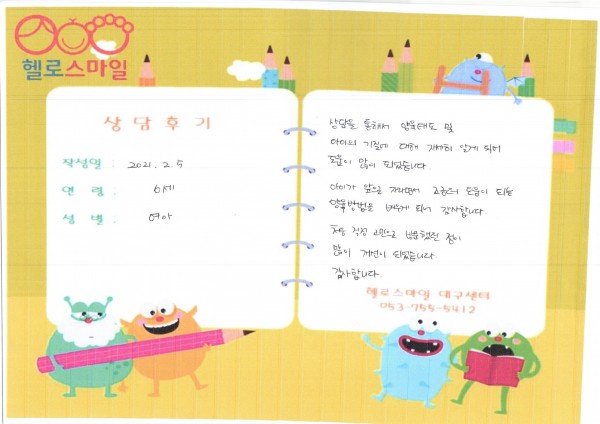 헬로스마일
상담후기
작성일 : 2021. 2. 5
연 령 : 6세
성 별 : 여아
상담을 통해서 양육태도 및
아이의 기질에 대해 자세히 알게 되어
도움이 많이 되었습니다.
아이가 앞으로 자라면서 도움이 되는
양육방법을 배우게 되어 감사합니다.
처음 걱정 고민으로 했던 점이
많이 개선이 되었습니다.
감사합니다.
헬로스마일 대구센터
053-755-5412